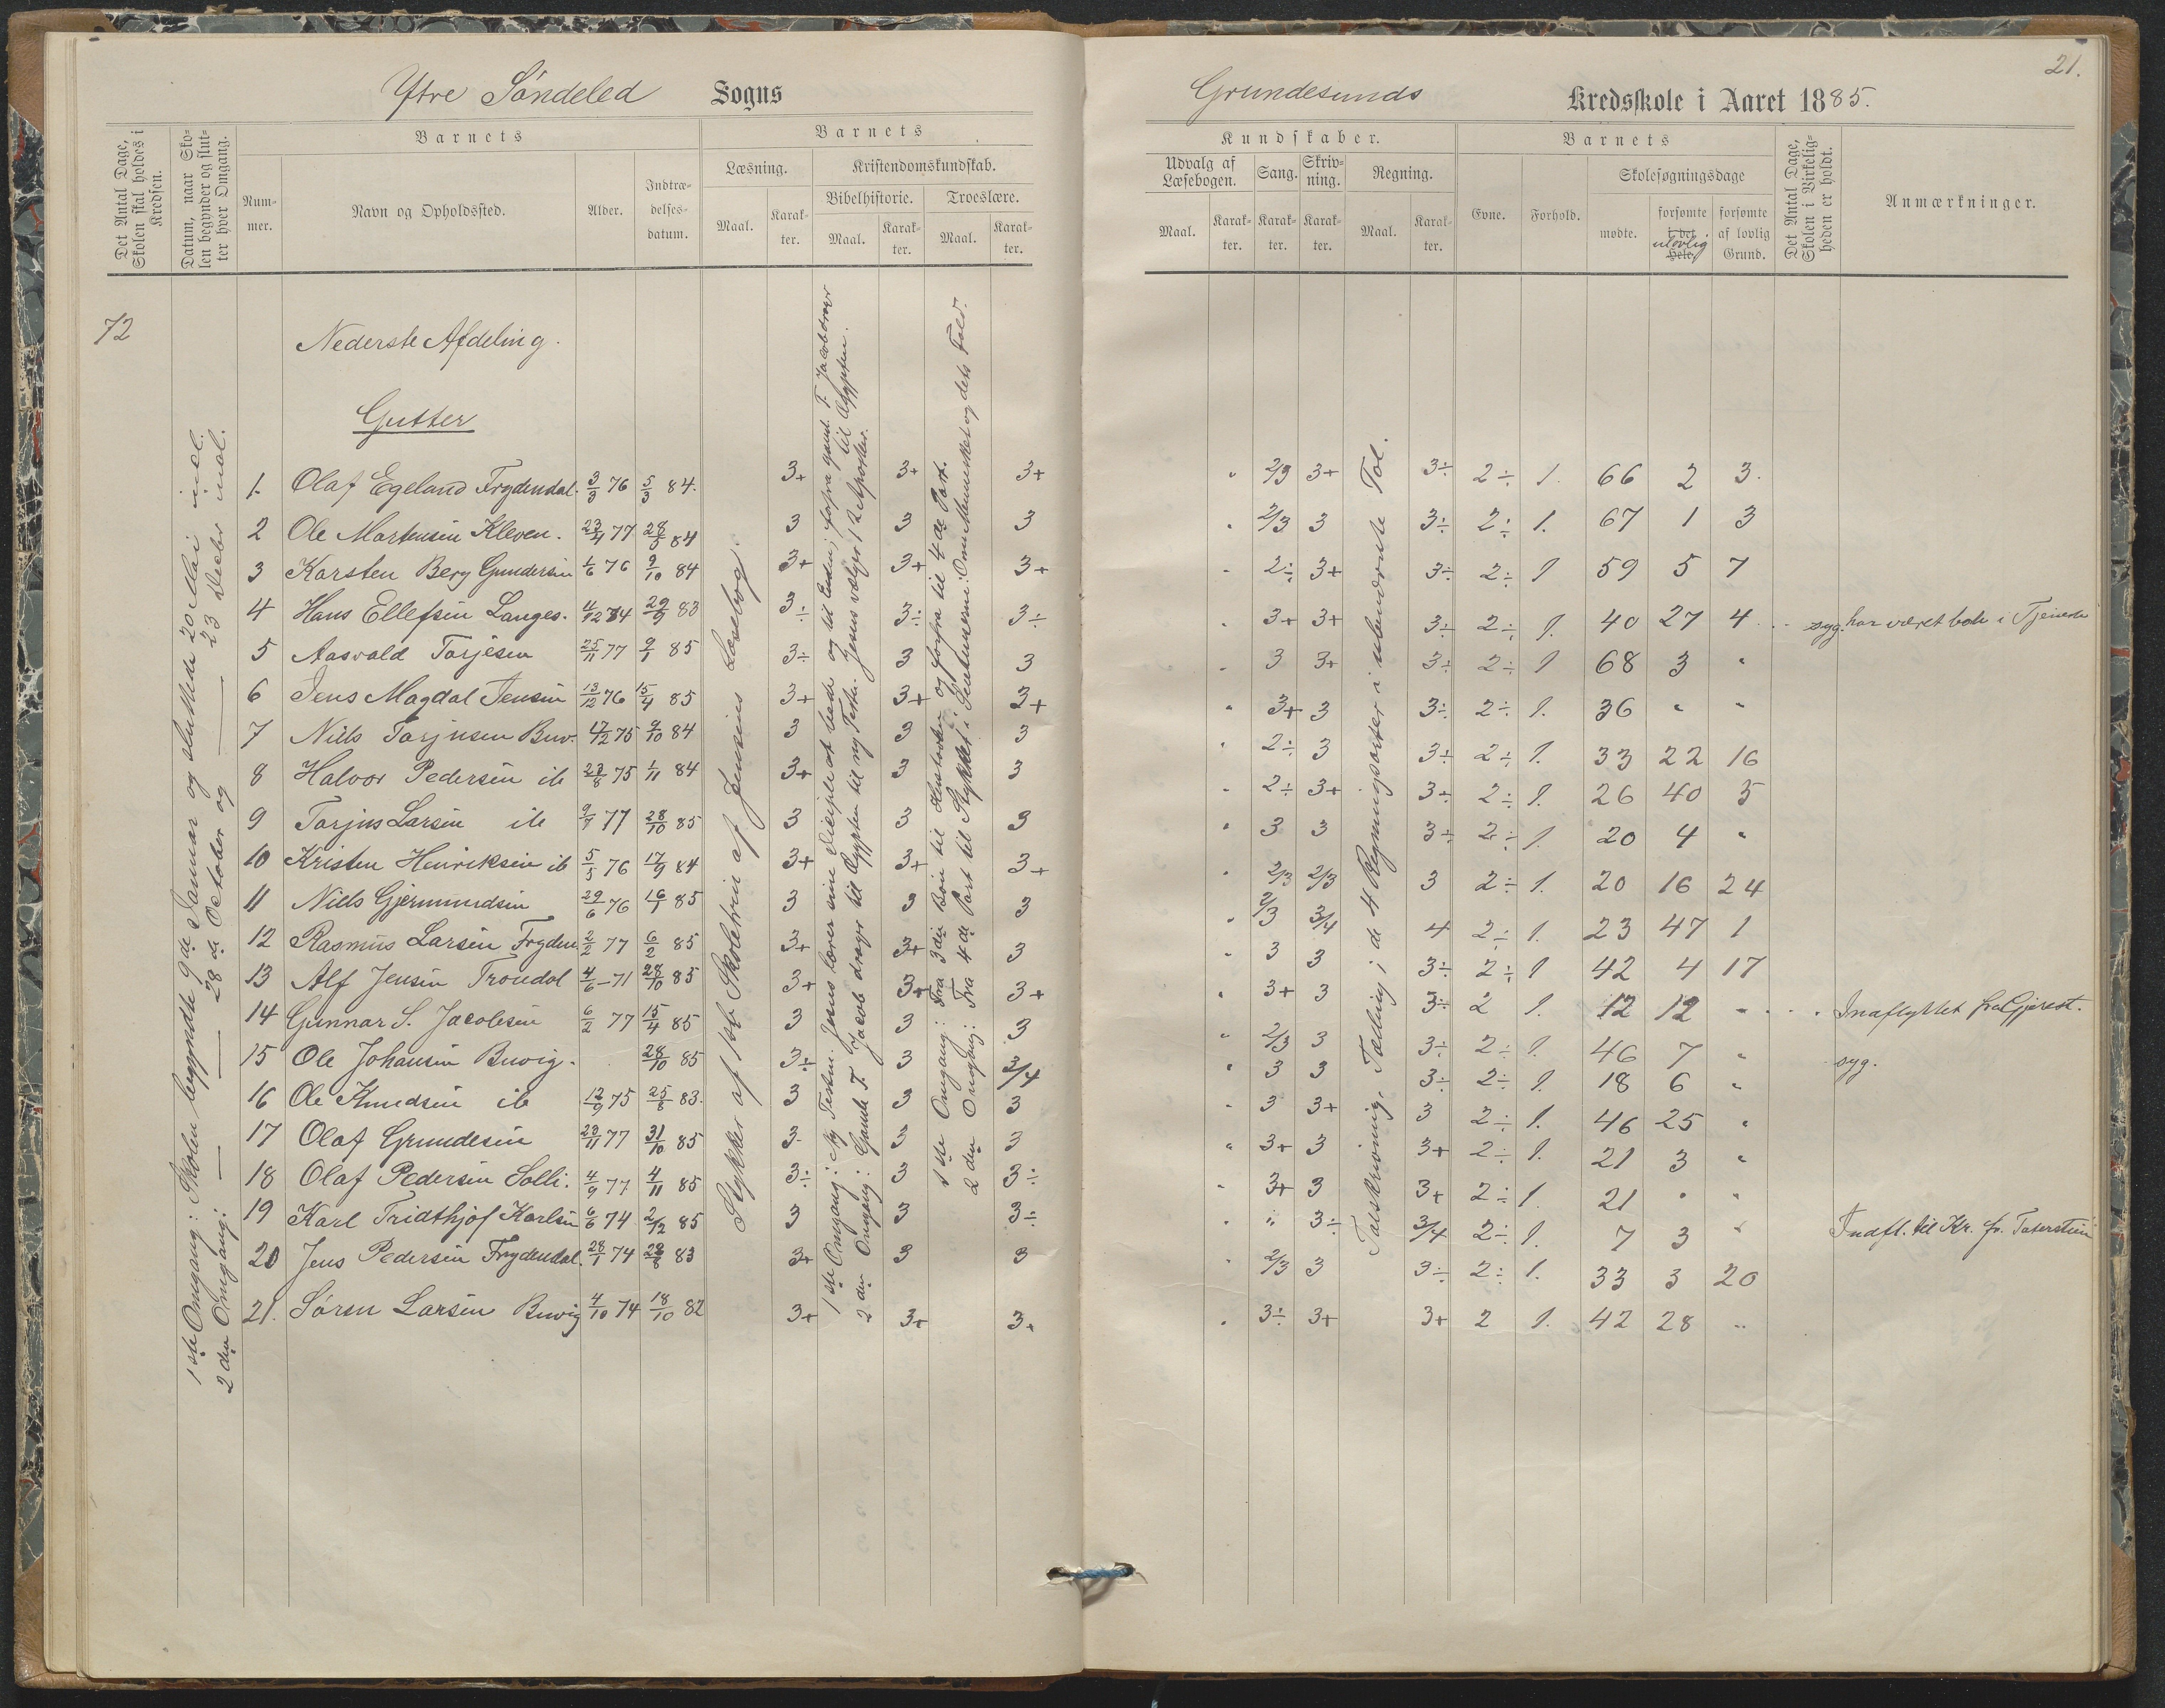 21.
Ytre Söndeled Sogns
Grundesunds Kredsskole i Aaret 1885.
Det Antal Dage, Skolen skal holdes i Kredsen.
Datum, naar Skolen begynder og slutter hver Omgang.
Barnets
Nummer.
Navn og Opholdssted.
Alder.
Indtrædelsesdatum.
Barnets
Læsning.
Kristendomskundskab.
Bibelhistorie.
Troeslære.
Maal. Karakter. Maal. Karakter. Maal. Karakter.
Kundskaber.
Udvalg af Læsebogen.
Sang.
Skrivning.
Regning.
Maal. Karakter. Karakter. Karakter. Maal. Karakter.
Barnets
Evne.
Forhold.
Skolesøgningsdage
mødte.
forsømte i det Hele. ulovlig
forsømte af lovlig Grund.
Det Antal Dage, Skolen i Virkeligheden er holdt.
Anmærkninger.
72
1ste Omgang: Skolen begyndte 9de Januar og sluttede 20 Mai incl.
2den Omgang: — — 28de October og — 23 Decbr incl.
Stykker af 1ste Skoletrin af Jensens Læsebog.
1ste Omgang: Ny Testm. Jesus lærer sine Disciple at bede og til Enden; forfra gaml. T. Jacob drager til Ægypten.
2den Omgang: Gamle T. Jacob drager til Ægypten til ny Testm. Jesus vælger 12 Apostler.
1ste Omgang: Fra 3die Bøn til Hustavlen og forfra til 4de Part.
2den Omgang: Fra 4de Part til Stykket i Sentenserne: Om Mennesket og dets Fald.
Talskrivning, Tælling i de 4 Regningsarter i ubenævnte Tal.
Nederste Afdeling.
Gutter
1. Olaf Egeland Frydendal. 3/3 76 5/3 84. 3+ 3+ 3+ " 2/3 3+ 3÷ 2÷ 1. 66 2 3.
2 Ole Martensen Kleven. 23/4 77 28/5 84 3 3 3 " 2/3 3 3÷ 2÷ 1. 67 1 3
3 Karsten Berg Gundersen 1/6 76 9/10 84 3+ 3+ 3+ " 2÷ 3+ 3÷ 2÷ 1 59 5 7
4 Hans Ellefsen Langes. 4/12 74 29/9 83 3÷ 3÷ 3÷ " 3+ 3+ 3÷ 2÷ 1. 40 27 4 syg. har været bort i Tjeneste
5 Aasvald Torjesen 25/11 77 9/1 85 3÷ 3 3 " 3 3+ 3÷ 2÷ 1 68 3 "
6 Jens Magdal Jensen 13/12 76 15/4 85 3+ 3+ 3+ " 3+ 3 3÷ 2÷ 1. 36 " "
7 Niels Torjusen Buv. 17/2 75 9/10 84 3 3 3 " 2÷ 3 3÷ 2÷ 1. 33 22 16
8 Halvor Pedersen ib 23/8 75 1/11 84 3+ 3 3 " 2÷ 3+ 3÷ 2÷ 1. 26 40 5
9 Torjus Larsen ib 9/7 77 28/10 85 3 3 3 " 3 3 3÷ 2÷ 1. 20 4 "
10 Kristen Henriksen ib 5/5 76 17/9 84 3+ 3+ 3+ " 2/3 2/3 3 2÷ 1. 20 16 24
11 Niels Gjermundsen 29/6 76 16/1 85 3 3 3 " 2/3 3/4 4 2÷ 1. 23 47 1
12 Rasmus Larsen Fryden 2/2 77 6/2 85 3+ 3+ 3 " 3 3 3÷ 2÷ 1 42 4 17
13 Alf Jensen Trondal 4/6 - 71 28/10 85 3+ 3+ 3+ " 3+ 3 3÷ 2 1. 12 12 " Indflyttet fra Gjerest.
14 Gunnar S. Jacobsen 6/2 77 15/4 85 3 3 3 " 2/3 3 3÷ 2÷ 1. 46 7 " syg.
15 Ole Johansen Buvig. 28/10 85 3÷ 3 3/4 " 3 3 3÷ 2÷ 1. 18 6 "
16 Ole Knudsen ib 12/9 75 25/8 83. 3 3 3 " 3 3+ 3 2÷ 1. 46 25 "
17 Olaf Grundesen 23/11 77 31/10 85 3 3 3 " 3+ 3 3+ 2÷ 1. 21 3 "
18 Olaf Pedersen Solli. 4/9 77 4/11 85 3÷ 3 3÷ " 3+ 3 3+ 2÷ 1. 21 " "
19 Karl Fridthjof Karlsen 6/6 74 2/12 85 3 3 3÷ " " 3÷ 3/4 2÷ 1. 7 3 " Indfl. til Kr. fr.
20 Jens Pedersen Frydendal. 28/1 74 22/8 83 3+ 3 3 " 2/3 3 3÷ 2÷ 1. 33 3 20
21. Sören Larsen Buvig 4/10 74 18/10 82 3+ 3+ 3+ " 3÷ 3+ 3+ 2 1. 42 28 "